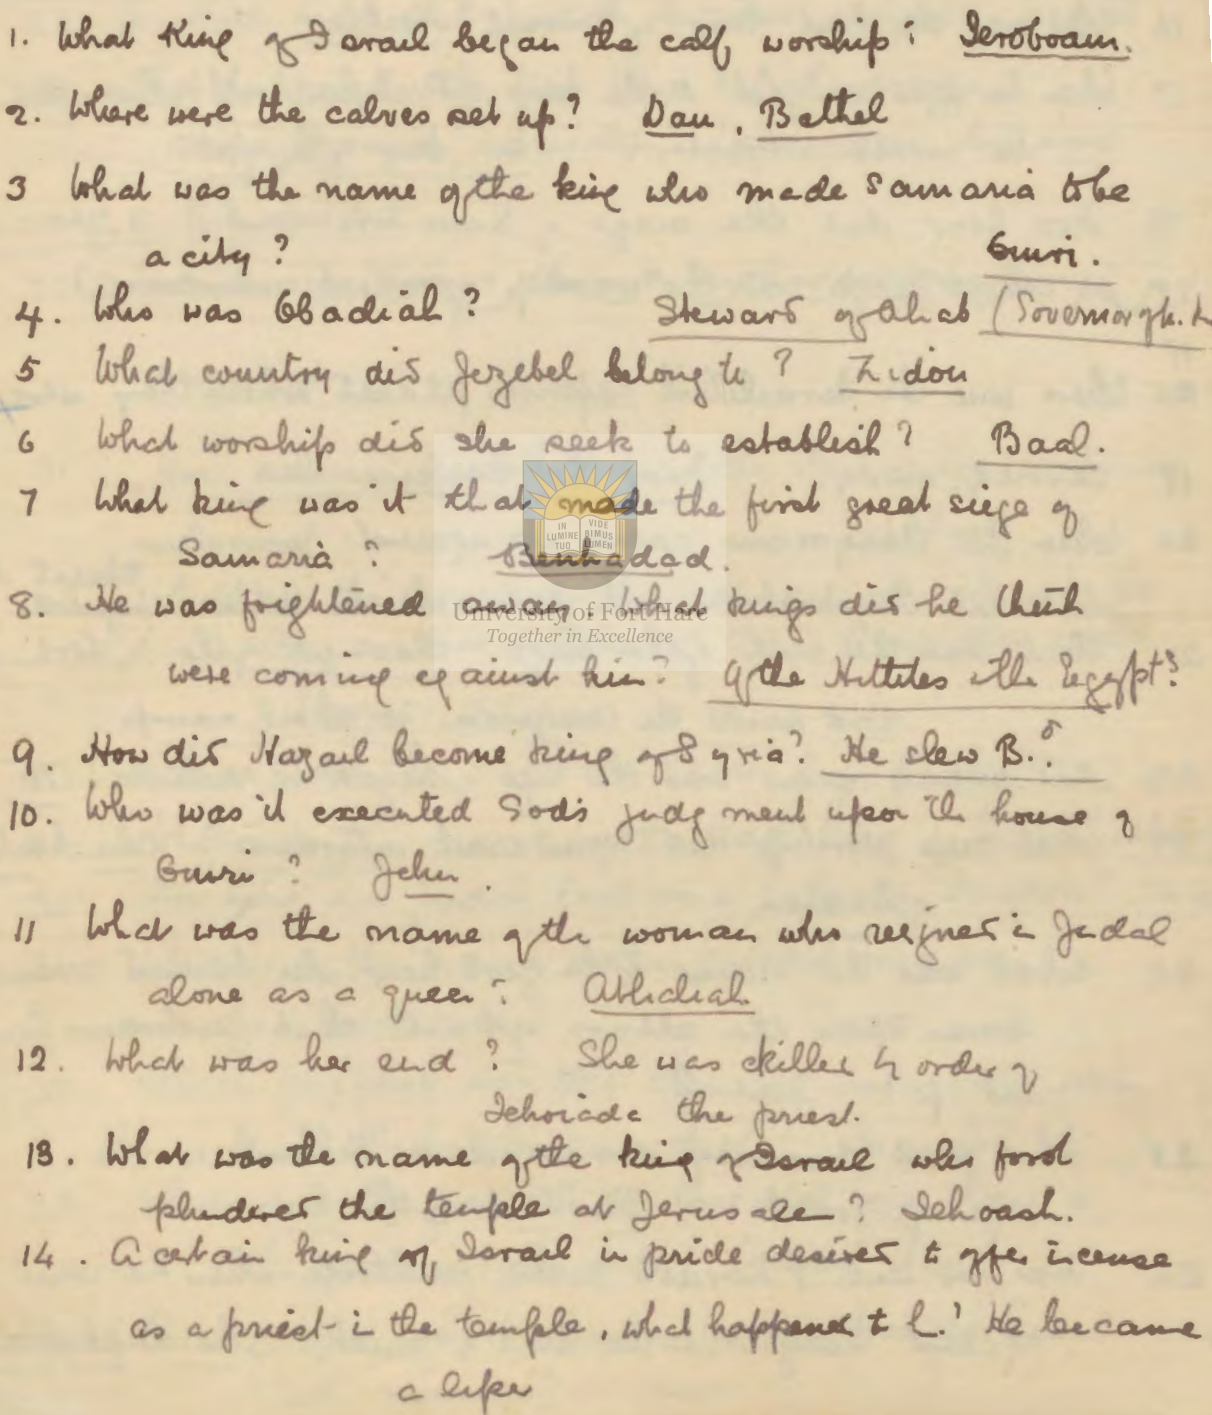 1. What King of Israel began the calf worship? Jeroboam.
2. Where were the calves set up? Dan, Bethel
3 What was the name of the king who made Samaria to be
a city? Omri.
4. Who was Obadiah? Steward of Ahab (Governor of h.
5 What country did Jezebel belong to? Zidon
6 What worship did she seek to establish? Baal.
7 What king was it that made the first great siege of
Samaria? Benhadad.
8. He was frightened away. What kings did he think
were coming against him? Of the Hittites & the Egypts
9. How did Hazael become king of Syria? He slew B.
10. Who was it executed God's judgment upon the house of
Omri? Jehu.
11 What was the name of the woman who reigned in Judah
alone as a queen? Athaliah
12. What was her end? She was killed by order of
Jehoiada the priest.
13. What was the name of the king of Israel who first
plundered the temple at Jerusalem? Jehoash.
14. A certain king of Israel in pride desired to offer incense
as a priest in the temple, what happened to h.? He became
a leper
IN LUMINE TUO VIDE BIMUS LUMEN
University of Fort Hare
Together in Excellence